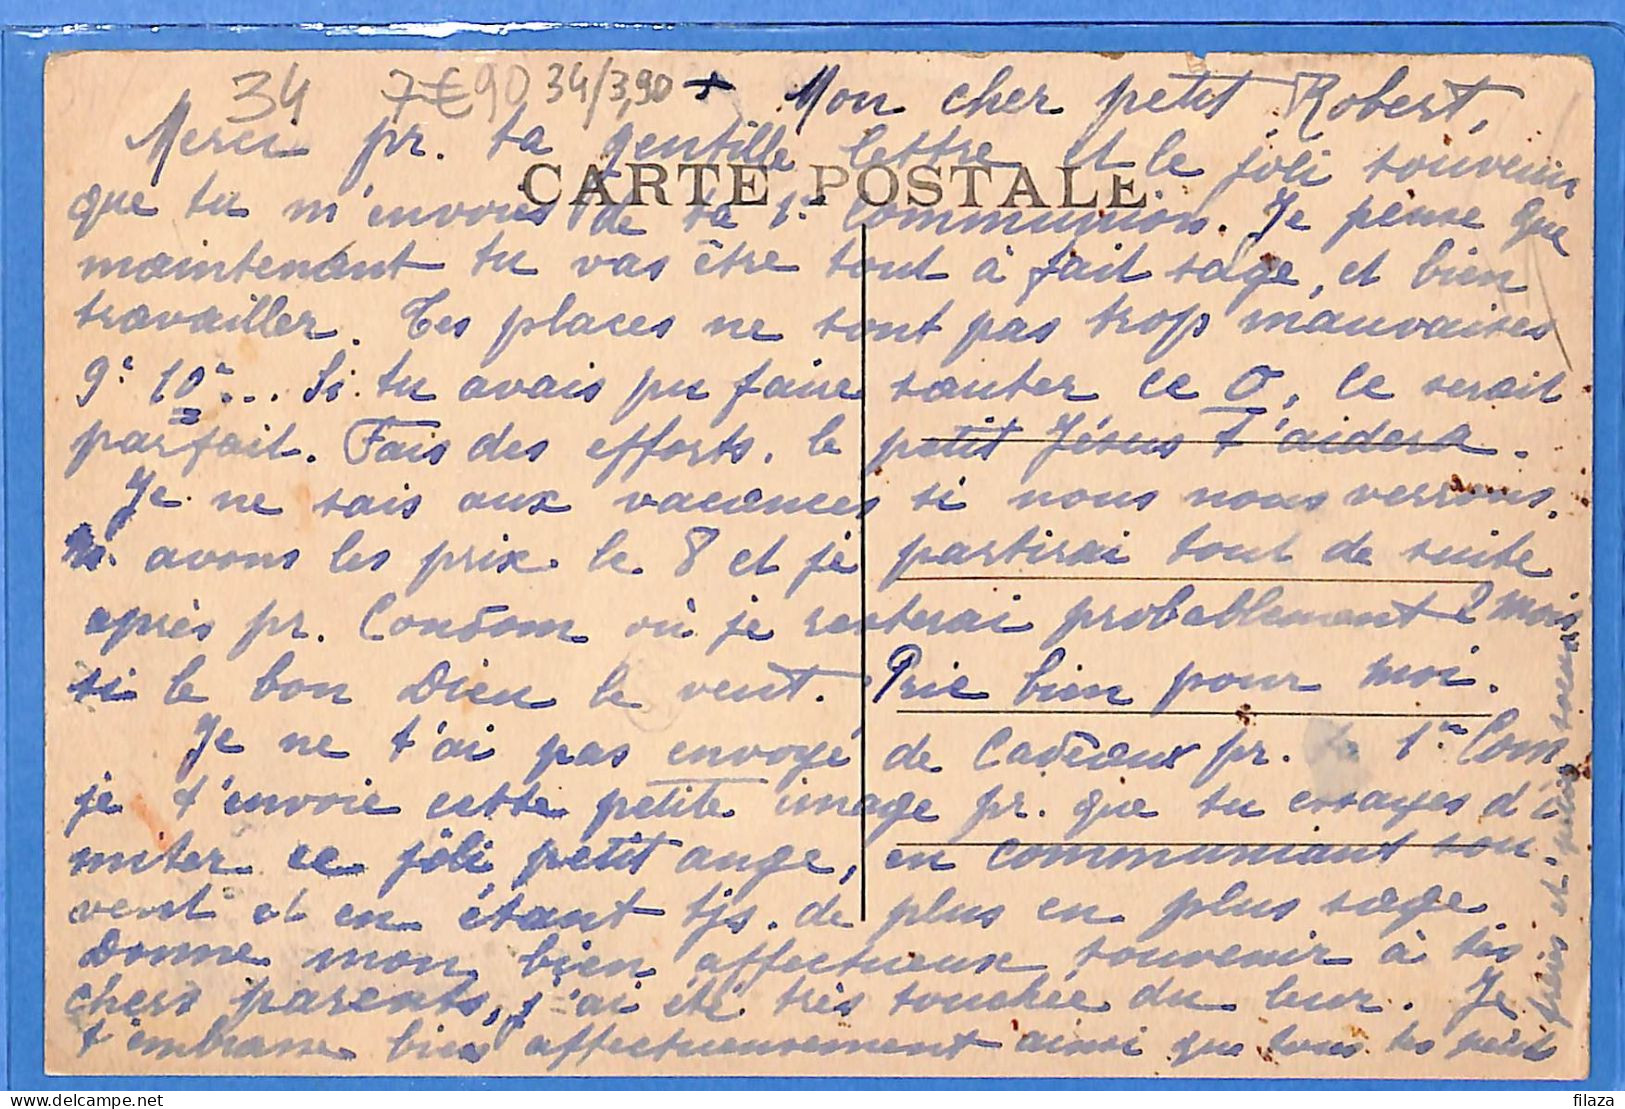 34 7€90 34/3,90 + Mon cher petit Robert,
Merci pr. ta gentille lettre et le joli souvenir
CARTE POSTALE
que tu m'envoies de ta 1e Communion. Je pense que
maintenant tu vas être tout à fait sage, et bien
travailler. Tes places ne sont pas trop mauvaises
9e 10e... Si tu avais pu faire sauter ce 0, ce serait
parfait. Fais des efforts. le petit Jésus t'aidera.
Je ne sais aux vacances si nous nous verrons.
N. avons les prix le 8 et je partirai tout de suite
après pr. Condom où je resterai probablement 2 mois
si le bon Dieu le veut. Prie bien pour moi.
Je ne t'ai pas envoyé de Cadeaux pr. ta 1re Com.
je t'envoie cette petite image pr. que tu essayes d'i
miter ce joli petit ange, en communiant sou-
vent et en étant tjs. de plus en plus sage
Donne mon bien affectueux souvenir à tes
chers parents, j'ai été très touchée du leur. Je
t'embrasse bien affectueusement ainsi que tous tes petits
frères et petites soeurs
filaza